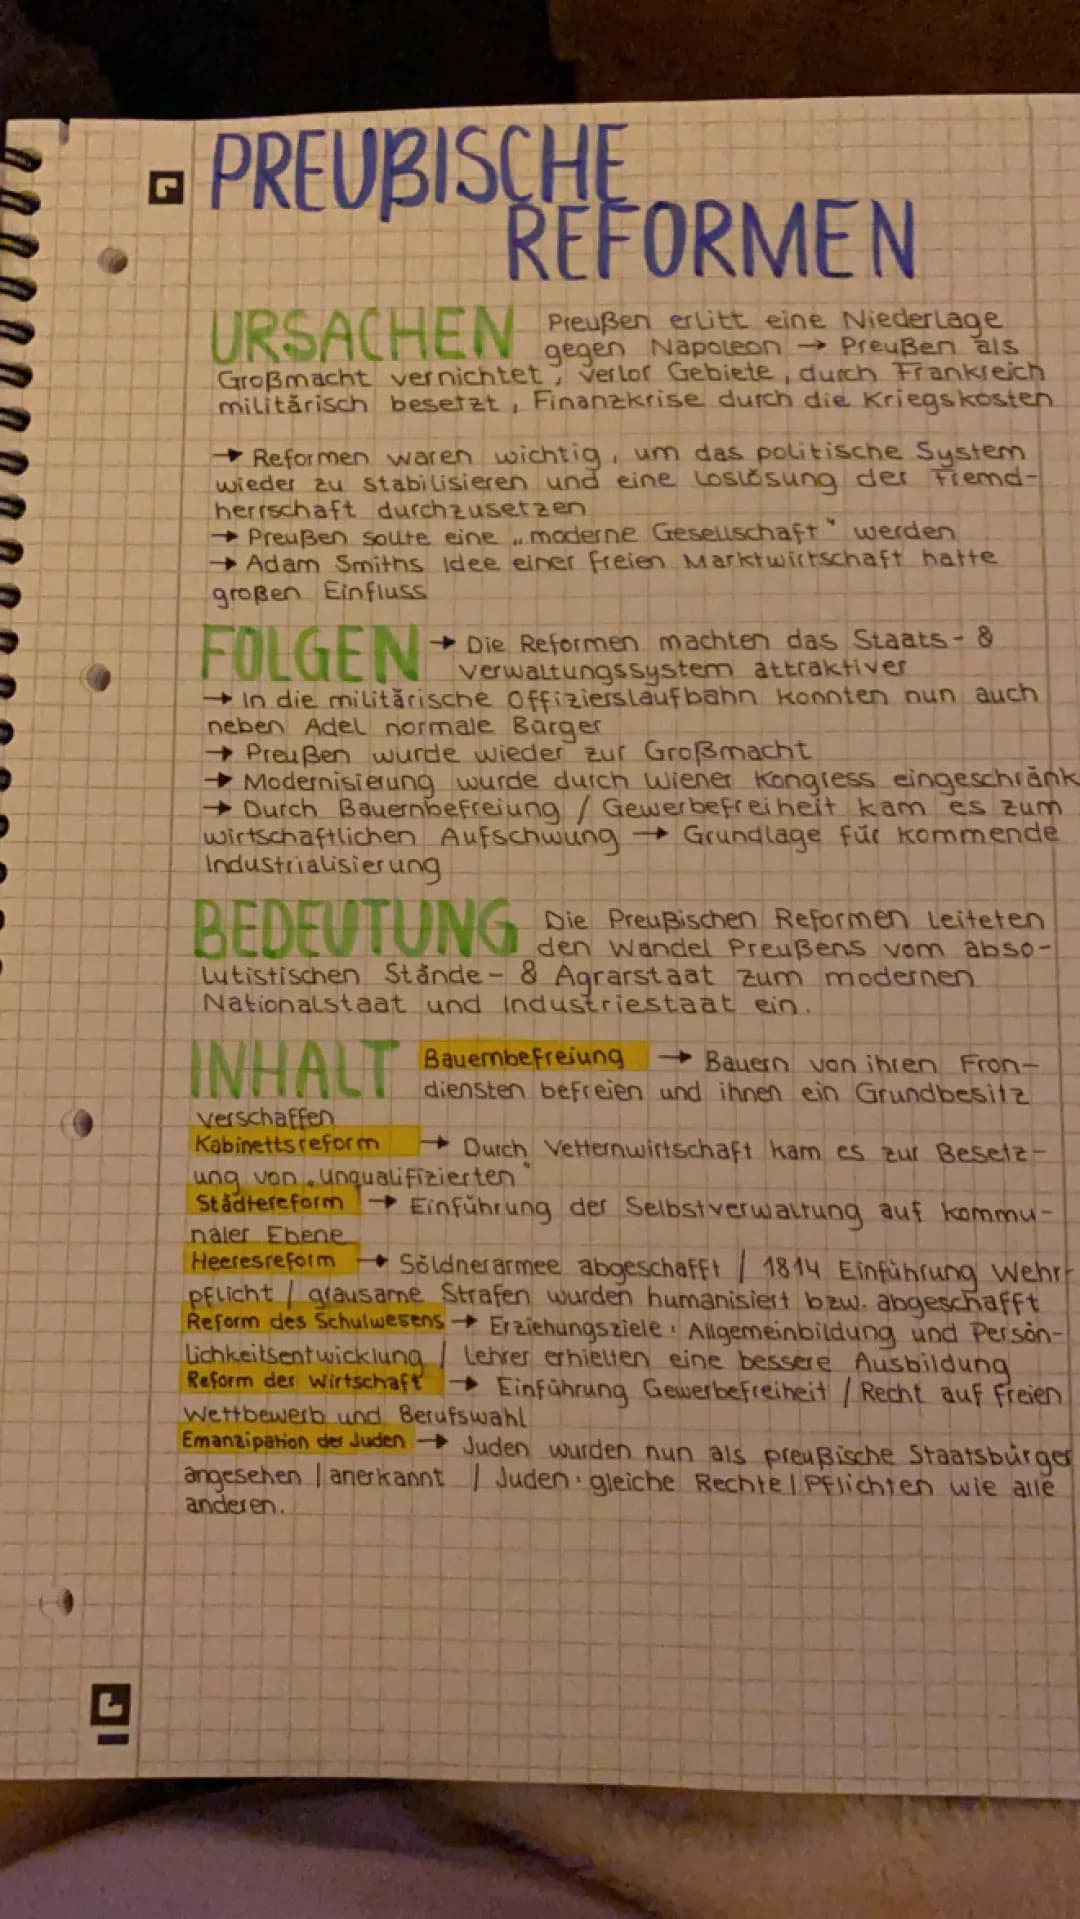 PREUßISCHE
REFORMEN
URSACHEN Preußen erlitt eine Niederlage
gegen Napoleon → Preußen als
Großmacht vernichtet, verlor Gebiete, durch Frankreich
militärisch besetzt, Finanzkrise durch die Kriegskosten
→ Reformen waren wichtig, um das politische System
wieder zu stabilisieren und eine Loslösung der Fremd-
herrschaft durchzusetzen
→ Preußen sollte eine „moderne Gesellschaft" werden
→ Adam Smiths Idee einer freien Marktwirtschaft hatte
großen Einfluss
FOLGEN → Die Reformen machten das Staats- &
Verwaltungssystem attraktiver
→ In die militärische Offizierslaufbahn konnten nun auch
neben Adel normale Bürger
→ Preußen wurde wieder zur Großmacht
→ Modernisierung wurde durch Wiener Kongress eingeschränk
→ Durch Bauernbefreiung / Gewerbefreiheit kam es zum
wirtschaftlichen Aufschwung → Grundlage für kommende
Industrialisierung
BEDEUTUNG Die Preußischen Reformen leiteten
den Wandel Preußens vom abso-
lutistischen Stände- & Agrarstaat zum modernen
Nationalstaat und Industriestaat ein.
INHALT Bauernbefreiung → Bauern von ihren Fron-
diensten befreien und ihnen ein Grundbesitz
verschaffen
Kabinettsreform → Durch Vetternwirtschaft kam es zur Besetz-
ung von „Unqualifizierten"
Städtereform → Einführung der Selbstverwaltung auf kommu-
naler Ebene
Heeresreform → Söldnerarmee abgeschafft / 1814 Einführung Wehr-
pflicht / grausame Strafen wurden humanisiert bzw. abgeschafft
Reform des Schulwesens → Erziehungsziele: Allgemeinbildung und Persön-
lichkeitsentwicklung / Lehrer erhielten eine bessere Ausbildung
Reform der Wirtschaft → Einführung Gewerbefreiheit / Recht auf freien
Wettbewerb und Berufswahl
Emanzipation der Juden → Juden wurden nun als preußische Staatsbürger
angesehen / anerkannt / Juden: gleiche Rechte / Pflichten wie alle
anderen.